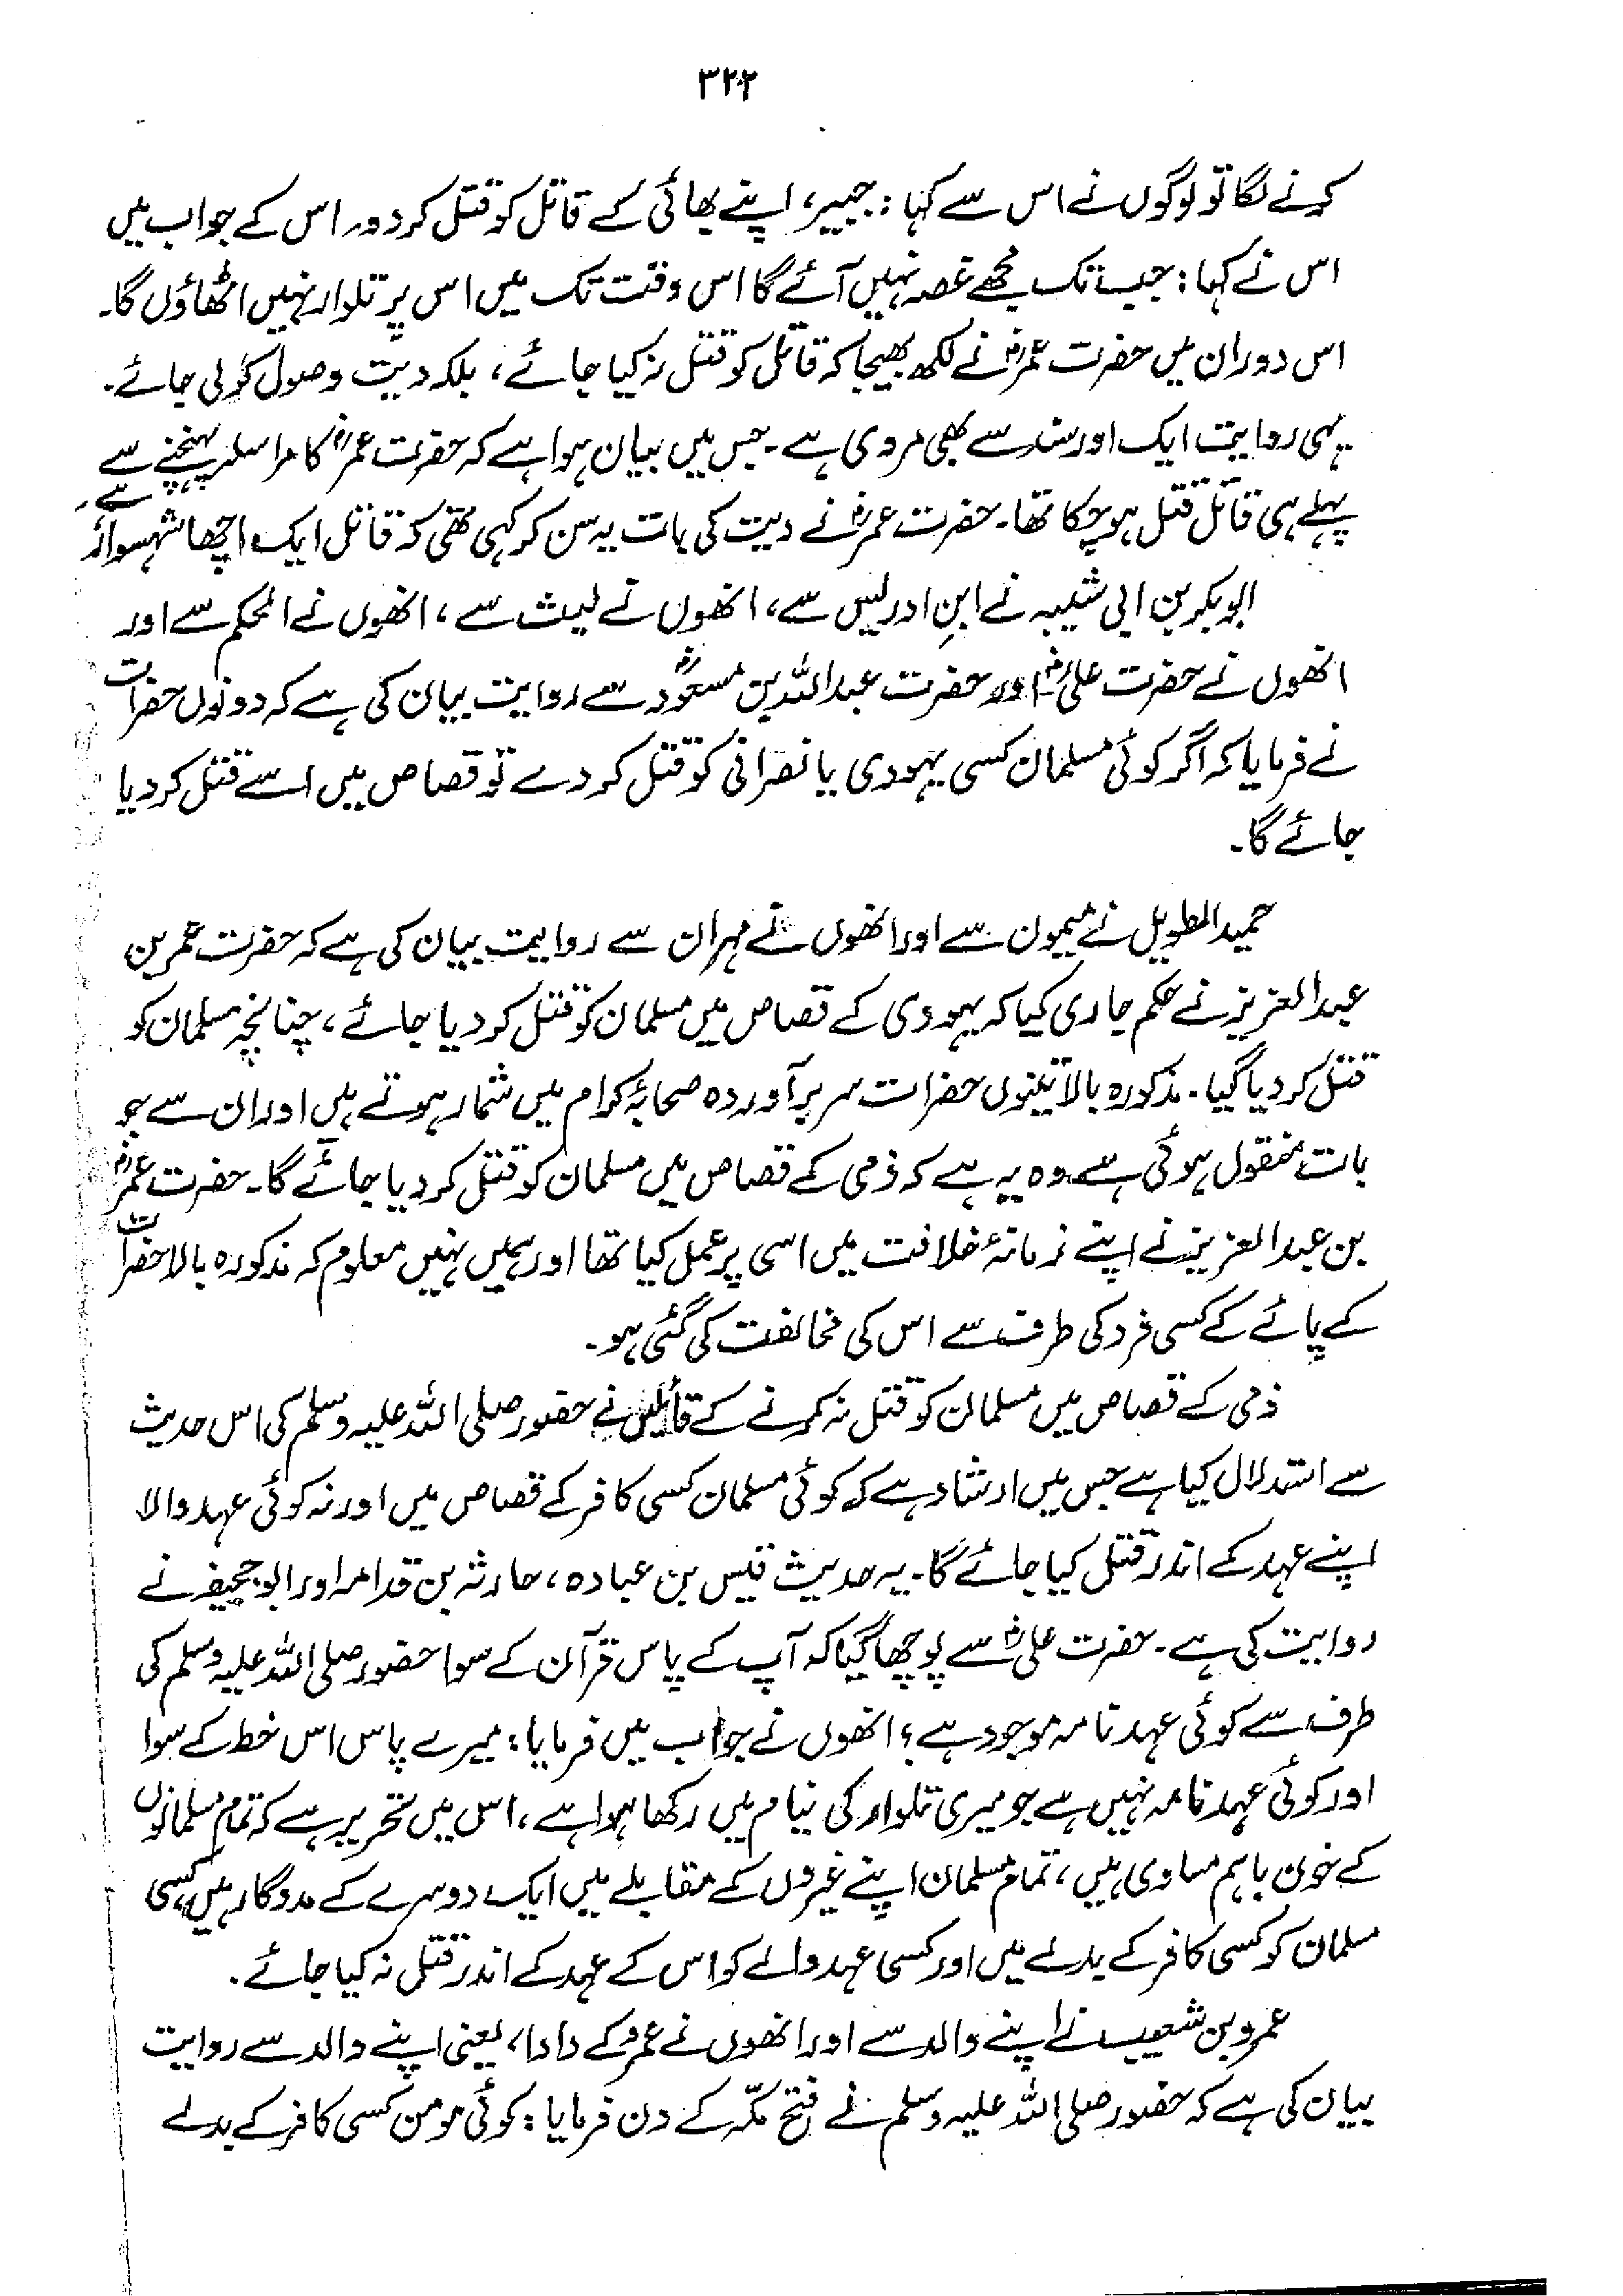 ۳۲۲
کرنے لگا تو لوگوں نے اس سے کہا: جبیر، اپنے بھائی کے قاتل کو قتل کر دو۔ اس کے جواب میں
اس نے کہا: جب تک مجھے غصہ نہیں آئے گا اس وقت تک میں اس پر تلوار نہیں اٹھاؤں گا۔
اس دوران میں حضرت عمرؓ نے لکھ بھیجا کہ قاتل کو قتل نہ کیا جائے، بلکہ دیت وصول کر لی جائے۔
یہی روایت ایک اور سند سے بھی مروی ہے۔ جس میں بیان ہوا ہے کہ حضرت عمرؓ کا مراسلہ پہنچنے سے
پہلے ہی قاتل قتل ہو چکا تھا۔ حضرت عمرؓ نے دیت کی بات یہ سن کر کہی تھی کہ قاتل ایک اچھا شہسوار ہے۔
ابوبکر بن ابی شیبہ نے ابنِ ادریس سے، انھوں نے لیث سے، انھوں نے الحکم سے اور
انھوں نے حضرت علیؓ اور حضرت عبداللہ بن مسعودؓ سے روایت بیان کی ہے کہ دونوں حضرات
نے فرمایا کہ اگر کوئی مسلمان کسی یہودی یا نصرانی کو قتل کر دے تو قصاص میں اسے قتل کر دیا
جائے گا۔
حمید الطویل نے میمون سے اور انھوں نے مہران سے روایت بیان کی ہے کہ حضرت عمر بن
عبدالعزیز نے حکم جاری کیا کہ یہودی کے قصاص میں مسلمان کو قتل کر دیا جائے، چنانچہ مسلمان کو
قتل کر دیا گیا۔ مذکورہ بالا تینوں حضرات سربرآوردہ صحابۂ کرام میں شمار ہوتے ہیں اور ان سے جو
بات منقول ہوئی ہے وہ یہ ہے کہ ذمی کے قصاص میں مسلمان کو قتل کر دیا جائے گا۔ حضرت عمرؓ
بن عبدالعزیز نے اپنے زمانۂ خلافت میں اسی پر عمل کیا تھا اور ہمیں نہیں معلوم کہ مذکورہ بالا حضرات
کے پائے کے کسی فرد کی طرف سے اس کی مخالفت کی گئی ہو۔
ذمی کے قصاص میں مسلمان کو قتل نہ کرنے کے قائلین نے حضور صلی اللہ علیہ وسلم کی اس حدیث
سے استدلال کیا ہے جس میں ارشاد ہے کہ کوئی مسلمان کسی کافر کے قصاص میں اور نہ کوئی عہد والا
اپنے عہد کے اندر قتل کیا جائے گا۔ یہ حدیث قیس بن عبادہ، حارثہ بن قدامہ اور ابوجحیفہ نے
روایت کی ہے۔ حضرت علیؓ سے پوچھا گیا کہ آپ کے پاس قرآن کے سوا حضور صلی اللہ علیہ وسلم کی
طرف سے کوئی عہد نامہ موجود ہے؟ انھوں نے جواب میں فرمایا: میرے پاس اس خط کے سوا
اور کوئی عہد نامہ نہیں ہے جو میری تلوار کی نیام میں رکھا ہوا ہے، اس میں تحریر ہے کہ تمام مسلمانوں
کے خون باہم مساوی ہیں، تمام مسلمان اپنے غیروں کے مقابلے میں ایک دوسرے کے مددگار ہیں، کسی
مسلمان کو کسی کافر کے بدلے میں اور کسی عہد والے کو اس کے عہد کے اندر قتل نہ کیا جائے۔
عمرو بن شعیب نے اپنے والد سے اور انھوں نے عمرو کے دادا، یعنی اپنے والد سے روایت
بیان کی ہے کہ حضور صلی اللہ علیہ وسلم نے فتح مکّہ کے دن فرمایا: کوئی مومن کسی کافر کے بدلے